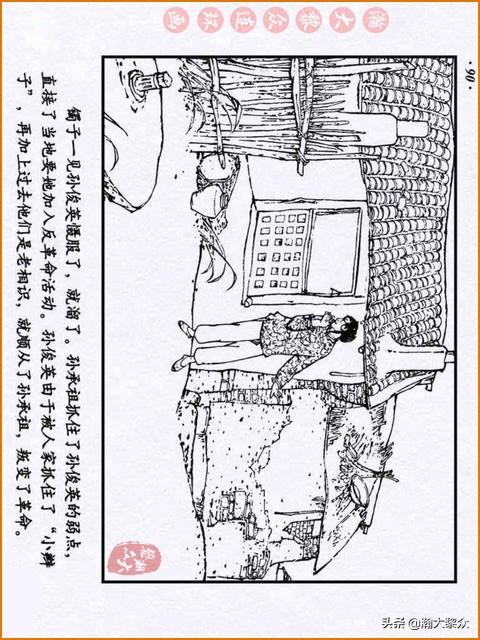 瀚大黎众连环画
·90·
镯子一见孙俊英慑服了，就溜了。孙承祖抓住了孙俊英的弱点，
直接了当地要她加入反革命活动。孙俊英由于被人家抓住了“小辫
子”，再加上过去他们是老相识，就顺从了孙承祖，叛变了革命。
瀚大黎众
头条 @瀚大黎众